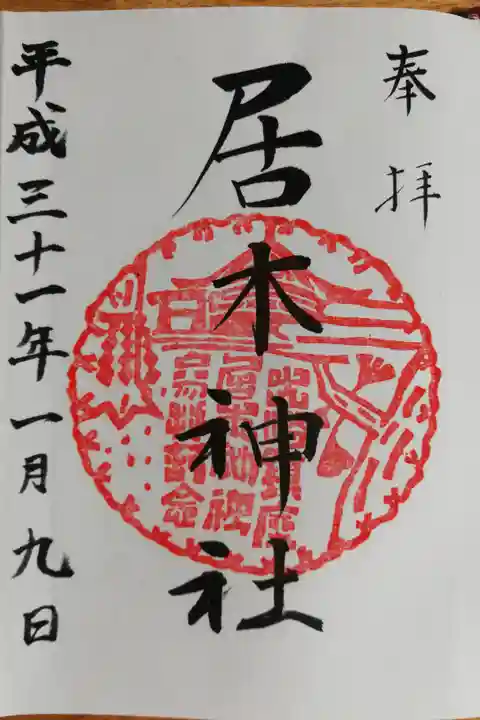 奉拝
居木神社
平成三十一年一月九日